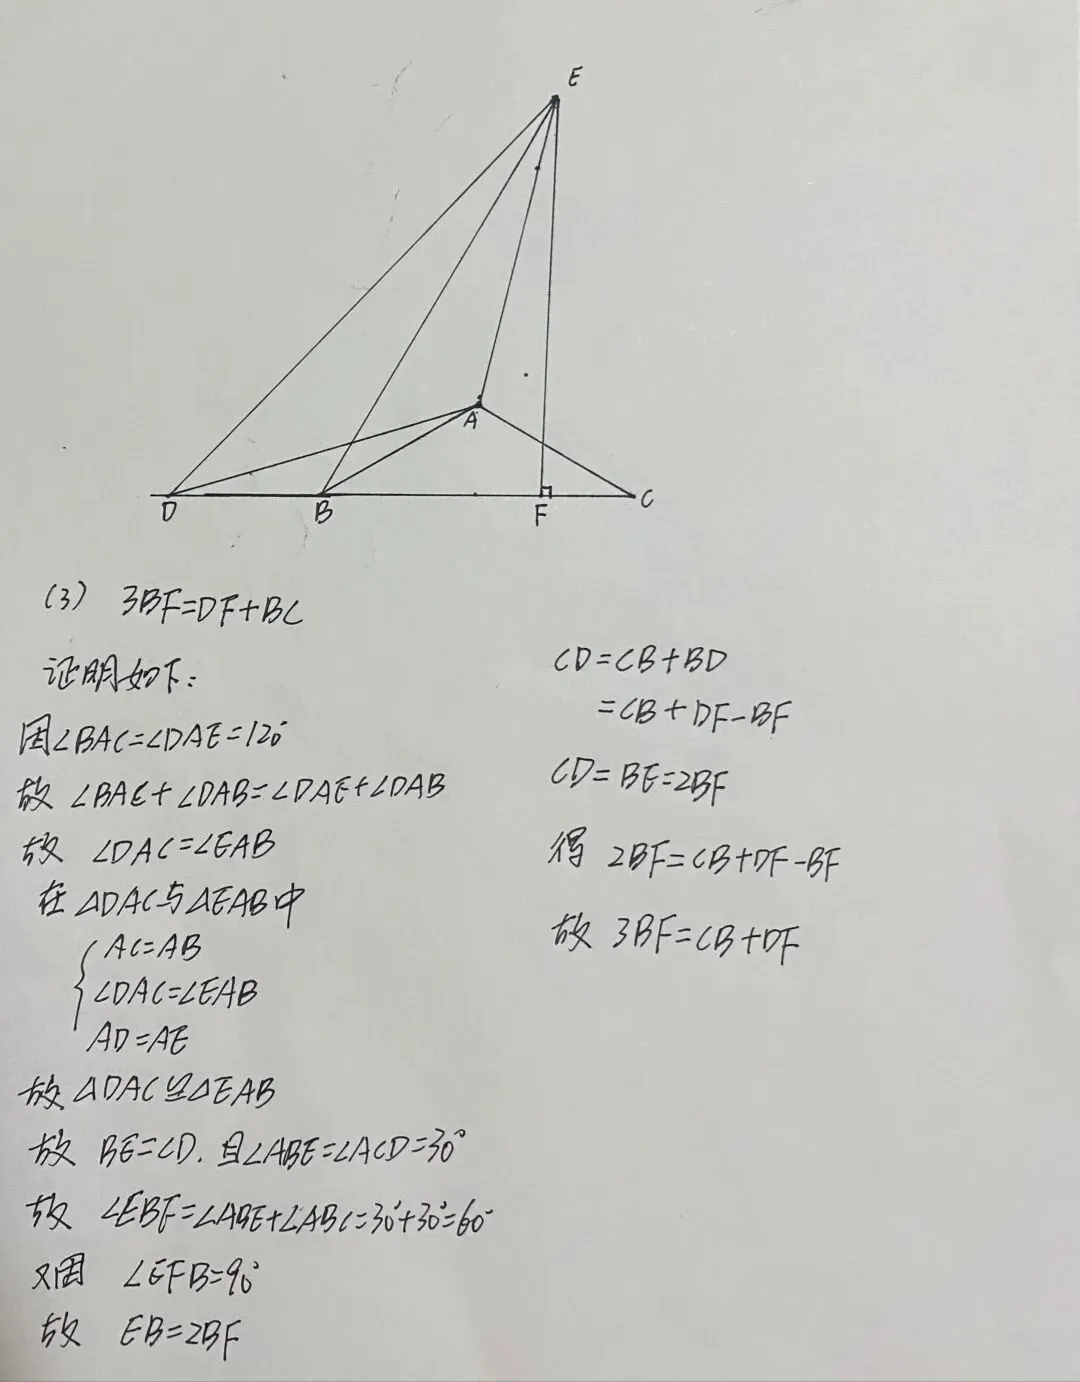 E
A
D
B
F
C
(3) 3BF=DF+BC
证明如下:
因∠BAC=∠DAE=120°
故 ∠BAC+∠DAB=∠DAE+∠DAB
故 ∠DAC=∠EAB
在△DAC与△EAB中
AC=AB
∠DAC=∠EAB
AD=AE
故△DAC≌△EAB
故 BE=CD. 且∠ABE=∠ACD=30°
故 ∠EBF=∠ABE+∠ABC=30°+30°=60°
又因 ∠EFB=90°
故 EB=2BF
CD=CB+BD
=CB+DF-BF
CD=BE=2BF
得 2BF=CB+DF-BF
故 3BF=CB+DF